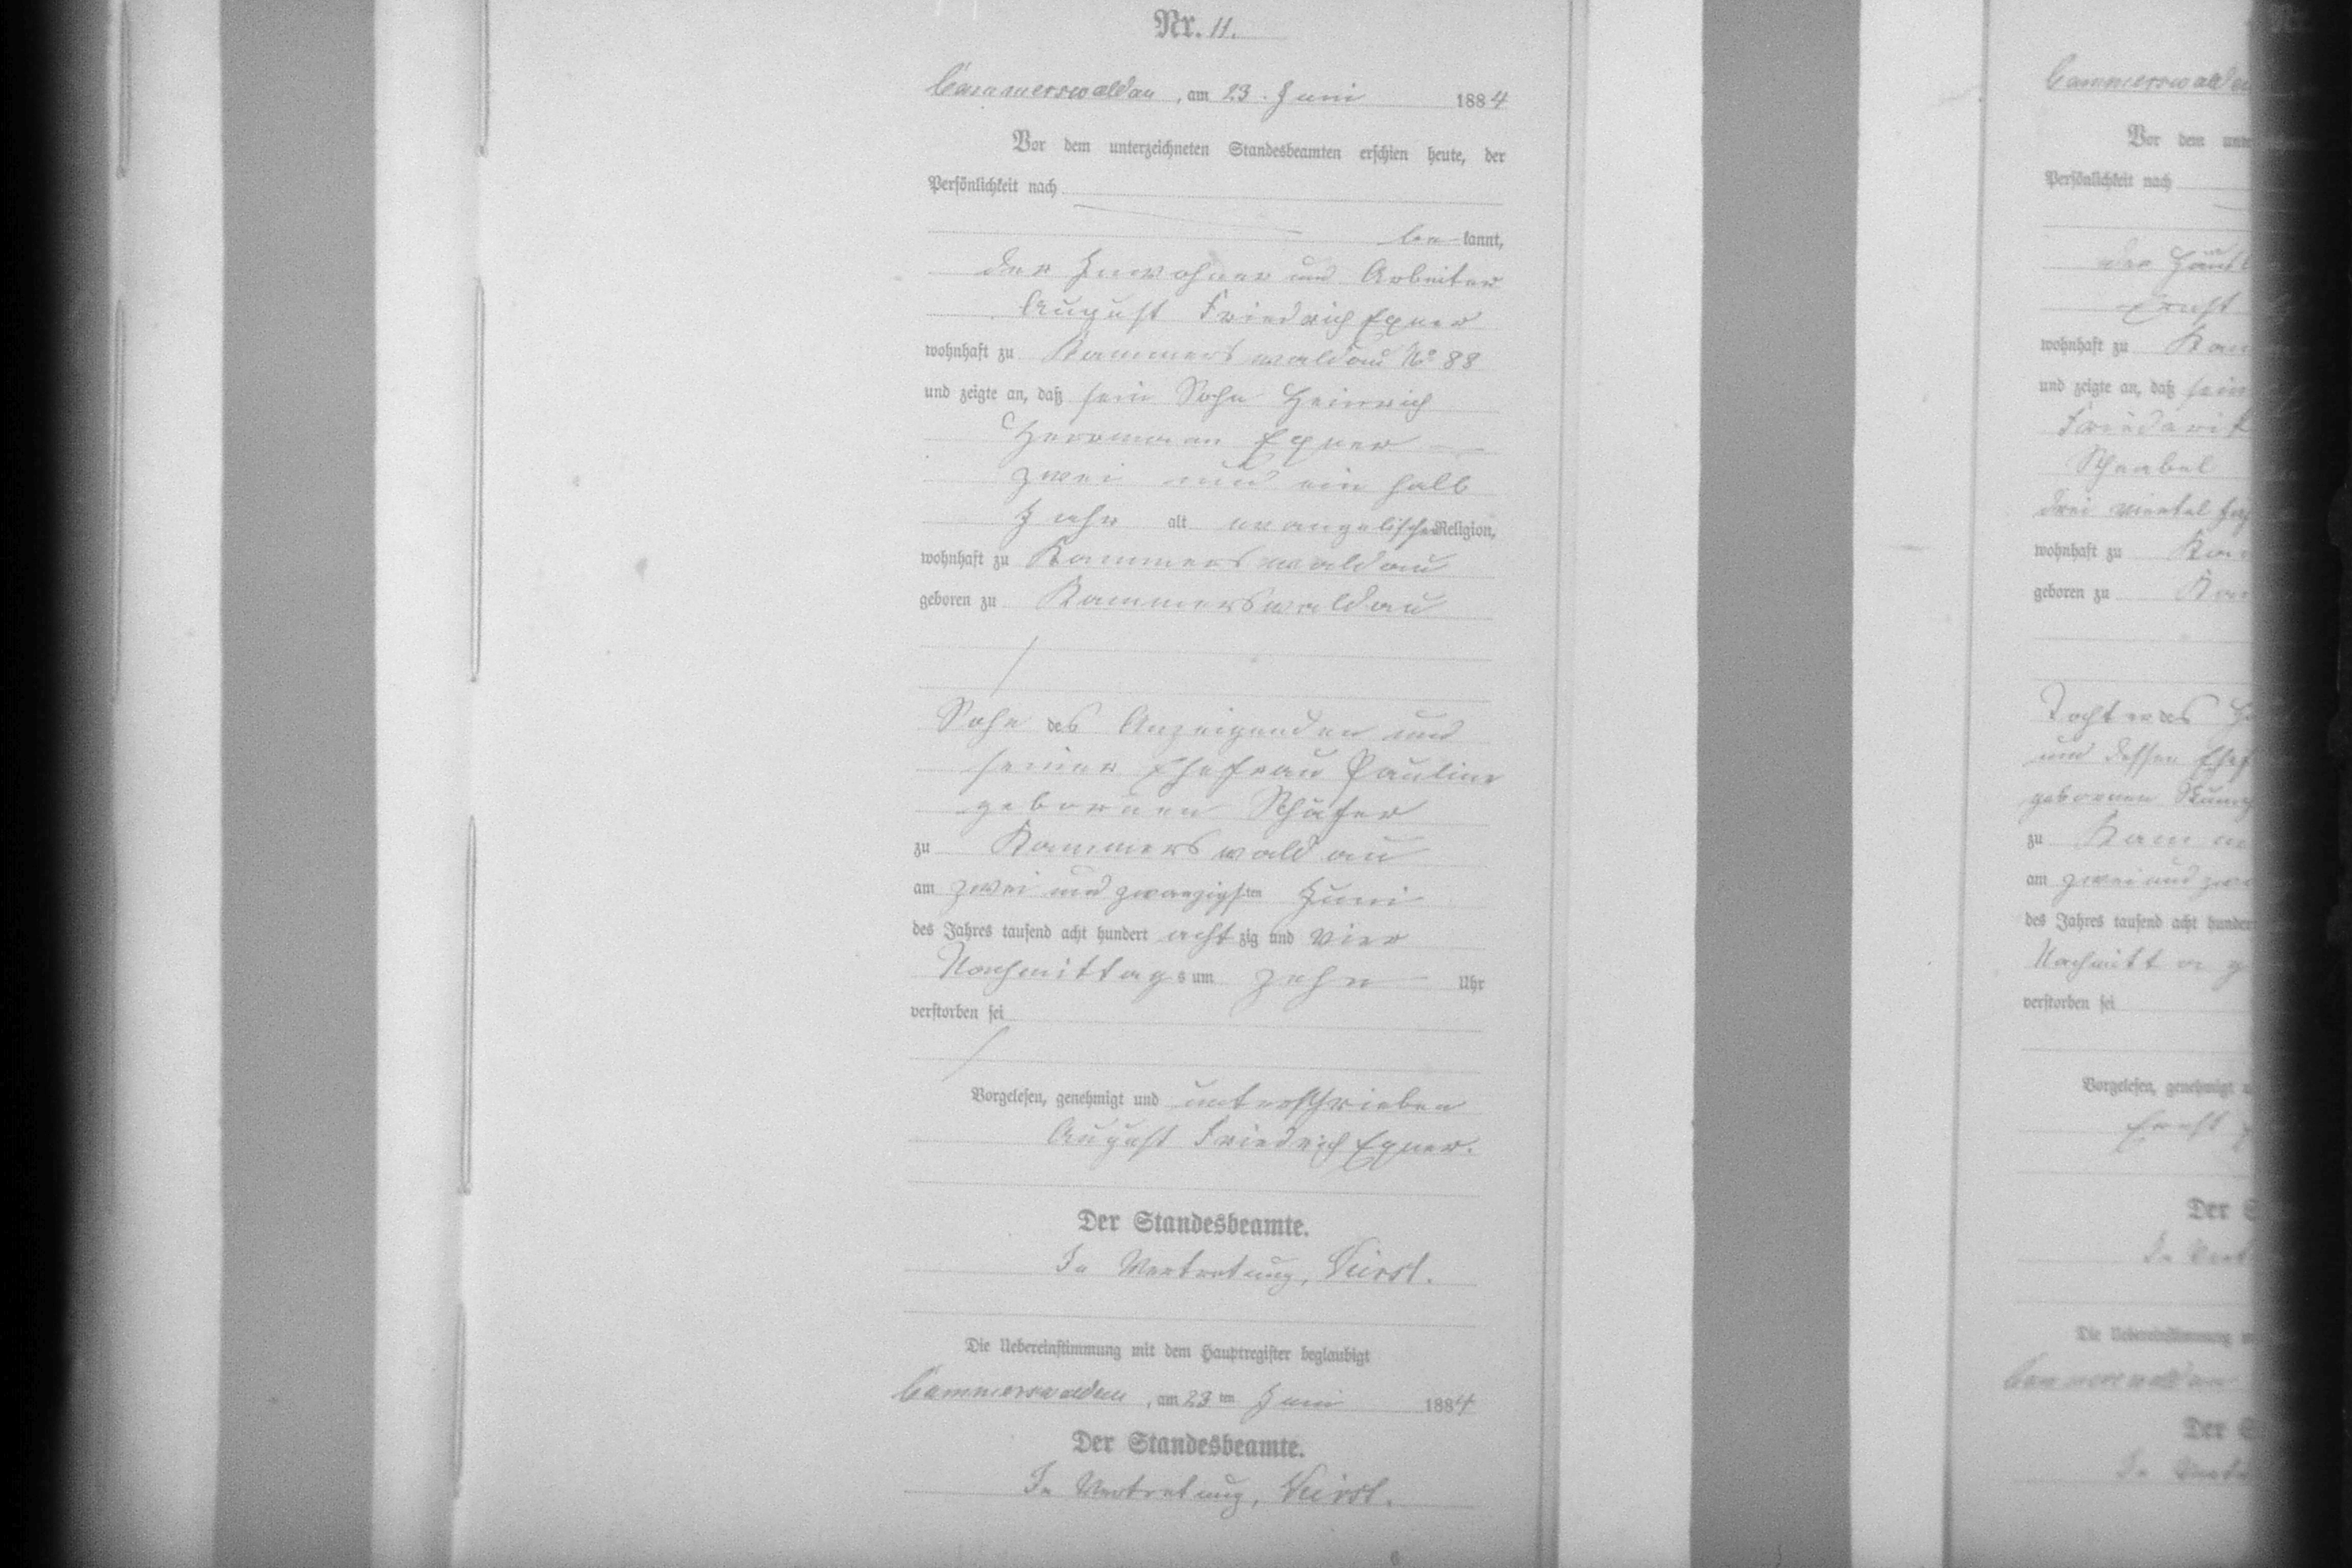 Nr. 11.
Cammerswaldau, am 23. Juni 1884
Vor dem unterzeichneten Standesbeamten erschien heute, der
Persönlichkeit nach
be kannt,
der Inwohner und Arbeiter
August Friedrich Exner
wohnhaft zu Kammerswaldau No 88
und zeigte an, daß sein Sohn Heinrich
Herrmann Exner
zwei und ein halb
Jahr alt evangelischer Religion,
wohnhaft zu Kammerswaldau
geboren zu Kammerswaldau
Sohn des Anzeigenden und
seiner Ehefrau Pauline
gebornen Schäfer
zu Kammerswaldau
am zwei und zwanzigsten Juni
des Jahres tausend acht hundert achtzig und vier
Nachmittags um zehn Uhr
verstorben sei
Vorgelesen, genehmigt und unterschrieben
August Friedrich Exner.
Der Standesbeamte.
In Vertretung,
Die Uebereinstimmung mit dem Hauptregister beglaubigt
Cammerswaldau, am 23ten Juni 1884
Der Standesbeamte.
In Vertretung,
Cammerswaldau
Vor dem
Persönlichkeit nach
der
Ernst
wohnhaft zu
und zeigte an, daß
Schnabel
drei viertel
wohnhaft zu
geboren zu
Tochter des
und dessen
gebornen
zu
am zwei und
des Jahres tausend acht hundert
verstorben sei
Vorgelesen, genehmigt
Ernst
Der
In
Die Uebereinstimmung
Cammerswaldau
Der
In